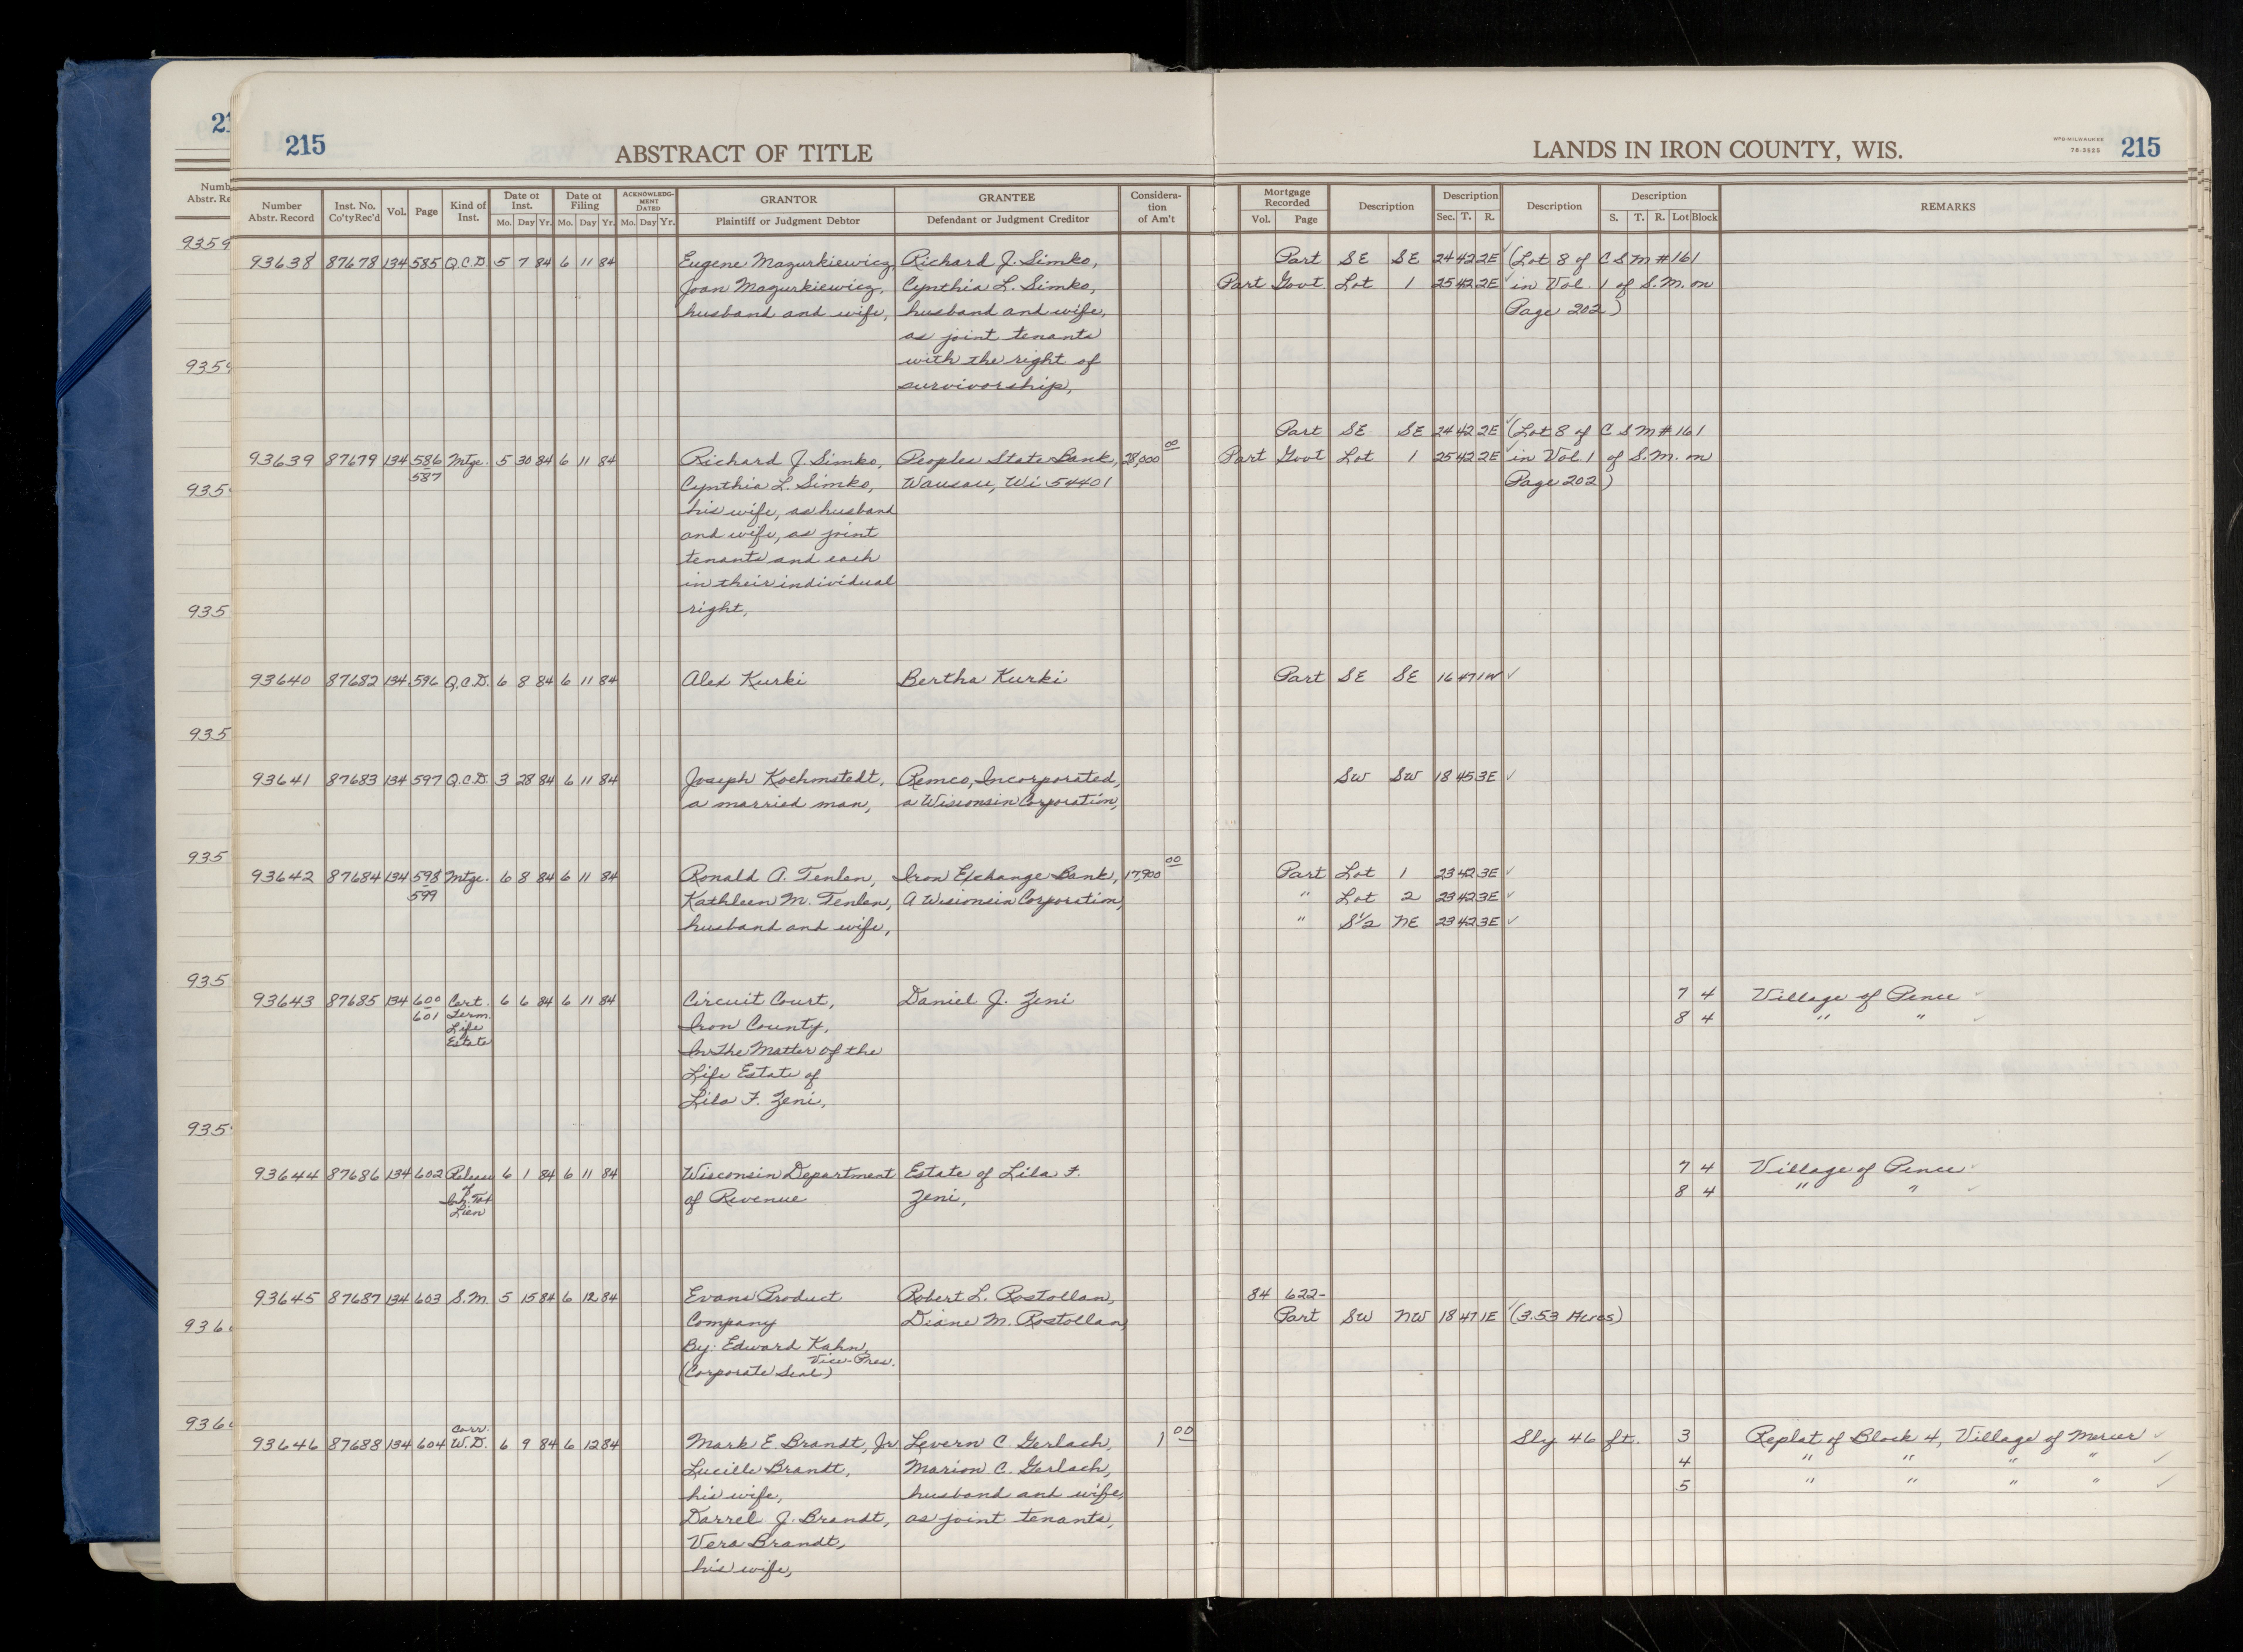 21
215
ABSTRACT OF TITLE
LANDS IN IRON COUNTY, WIS.
WPB-MILWAUKEE
78-3525
215
Numb
Abstr. Re
Number
Abstr. Record
Inst. No.
Co'tyRec'd
Vol.
Page
Kind of
Inst.
Date of
Inst.
Mo. Day Yr.
Date of
Filing
Mo. Day Yr.
ACKNOWLEDG-
MENT
DATED
Mo. Day Yr.
GRANTOR
Plaintiff or Judgment Debtor
GRANTEE
Defendant or Judgment Creditor
Considera-
tion
of Am't
Mortgage
Recorded
Vol. Page
Description
Description
Sec. T. R.
Description
Description
S. T. R. Lot Block
REMARKS
9359
93638 87678 134 585 Q.C.D. 5 7 84 6 11 84 Eugene Mazurkiewicz, Richard J. Simko, Part SE SE 24 42 2E ✓ (Lot 8 of C S M # 161
Joan Mazurkiewicz, Cynthia L. Simko, Part Govt. Lot 1 25 42 2E ✓ in Vol. 1 of S.M. on
husband and wife, husband and wife, Page 202)
as joint tenants
9359 with the right of
survivorship,
Part SE SE 24 42 2E ✓ (Lot 8 of C S M # 161
93639 87679 134 586 Mtge. 5 30 84 6 11 84 Richard J. Simko, Peoples State Bank, 28,000 00 Part Govt Lot 1 25 42 2E ✓ in Vol 1 of S.M. on
587 Cynthia L. Simko, Wausau, Wi 54401 Page 202)
935
his wife, as husband
and wife, as joint
tenants and each
in their individual
935 right,
93640 87682 134 596 Q.C.D. 6 8 84 6 11 84 Alex Kurki Bertha Kurki Part SE SE 16 47 1W ✓
935
93641 87683 134 597 Q.C.D. 3 28 84 6 11 84 Joseph Koehmstedt, Remco, Incorporated, SW SW 18 45 3E ✓
a married man, a Wisconsin Corporation,
935
93642 87684 134 598 Mtge. 6 8 84 6 11 84 Ronald A. Tenlen, Iron Exchange Bank, 17,900 00 Part Lot 1 23 42 3E ✓
599 Kathleen M. Tenlen, A Wisconsin Corporation, " Lot 2 23 42 3E ✓
husband and wife, " S½ NE 23 42 3E ✓
935
93643 87685 134 600 Cert. 6 6 84 6 11 84 Circuit Court, Daniel J. Zeni 7 4 Village of Pence ✓
601 Term. Iron County, 8 4 " " ✓
Life In The Matter of the
Estate Life Estate of
Lila F. Zeni,
935
93644 87686 134 602 Release 6 1 84 6 11 84 Wisconsin Department Estate of Lila F. 7 4 Village of Pence ✓
of of Revenue Zeni, 8 4 " " ✓
Inh. Tax
Lien
93645 87687 134 603 S.M. 5 15 84 6 12 84 Evans Product Robert L. Rostollan, 84 622-
936 Company Diane M. Rostollan, Part SW NW 18 47 1E ✓ (3.53 Acres)
By: Edward Kahn,
Vice-Pres.
(Corporate Seal)
936
Corr.
93646 87688 134 604 W.D. 6 9 84 6 12 84 Mark E. Brandt, Jr. Levern C. Gerlach, 1 00 Sly 46 ft. 3 Replat of Block 4, Village of Mercer ✓
Lucille Brandt, Marion C. Gerlach, 4 " " " " ✓
his wife, husband and wife, 5 " " " " ✓
Darrel J. Brandt, as joint tenants,
Vera Brandt,
his wife,